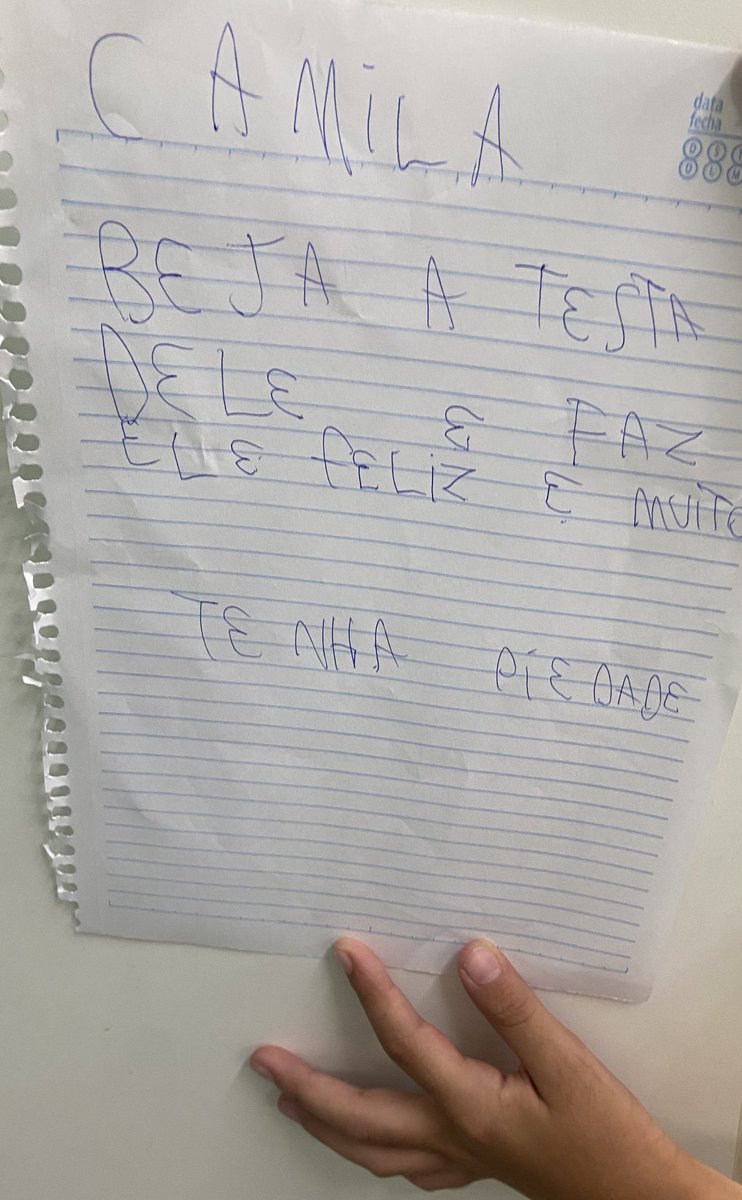 CAMiLA
data
fecha
D S T
D L M
BEJA A TESTA
DELE E FAZ
ELE FELiZ E MUiTO
TENHA PiEDADE